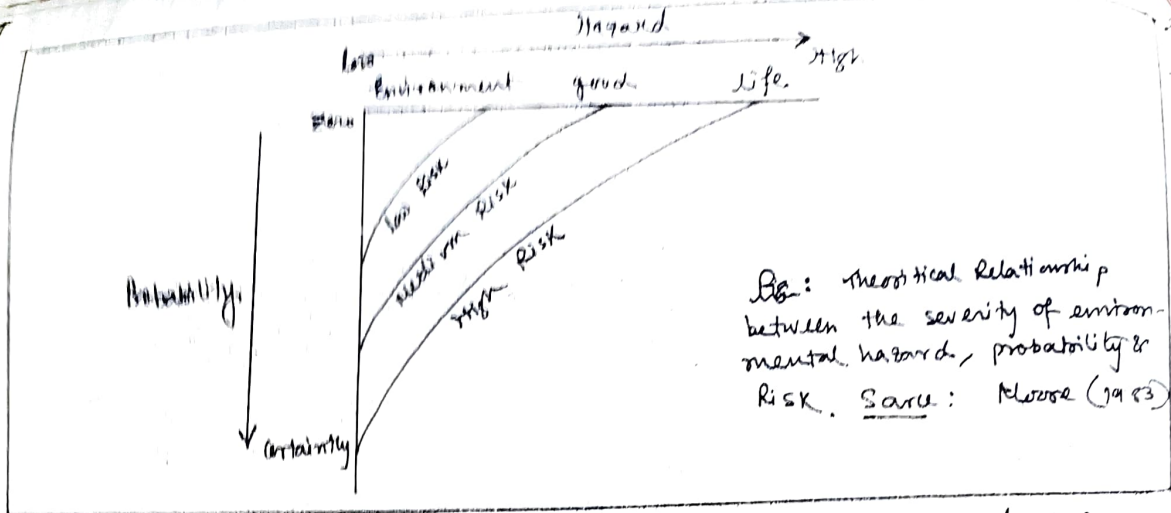 Hazard
Low
High
Environment good life.
Zero
Low Risk
Medium Risk
High Risk
Probability.
Certaintly
Fig: Theoritical Relationship
between the severity of environ-
mental hazard, probability &
Risk. Source: Moore (1983)